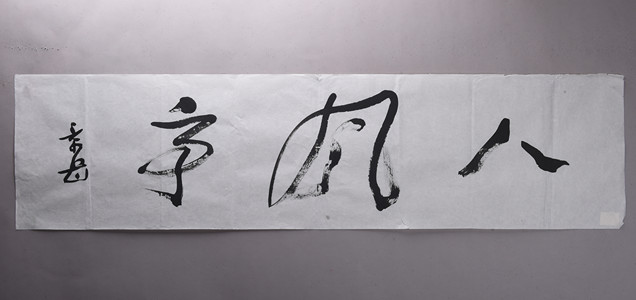 八風亭